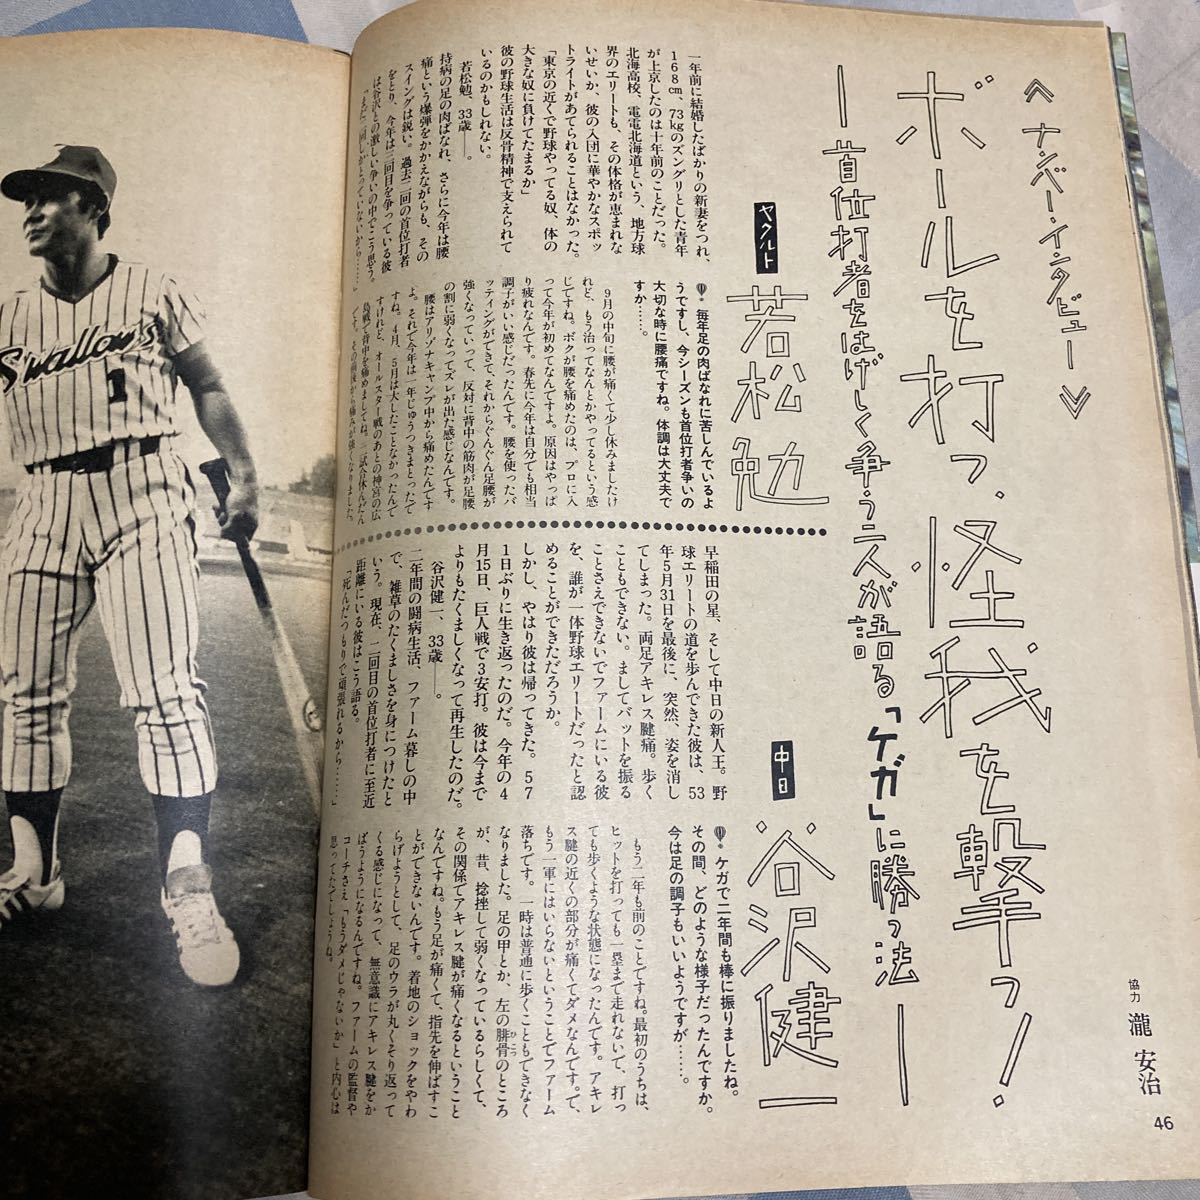 《ナンバー・インタビュー》
ボールを打つ、怪我を撃つ！
―首位打者をはげしく争う二人が語る「ケガ」に勝つ法―
協力 瀧 安治
ヤクルト
若松 勉
一年前に結婚したばかりの新妻をつれ、
168cm、73kgのズングリとした青年
が上京したのは十年前のことだった。
北海高校、電電北海道という、地方球
界のエリートも、その体格が恵まれな
いせいか、彼の入団に華やかなスポッ
トライトがあてられることはなかった。
「東京の近くで野球やってる奴、体の
大きな奴に負けてたまるか」
彼の野球生活は反骨精神で支えられて
いるのかもしれない。
若松勉、33歳――。
持病の足の肉ばなれ、さらに今年は腰
痛という爆弾をかかえながらも、その
スイングは鋭い。過去二回の首位打者
をとり、今年は三回目を争っている彼
は谷沢との激しい争いの中でこう思う。
「まだ二回しかとっていないから……」
毎年足の肉ばなれに苦しんでいるよ
うですし、今シーズンも首位打者争いの
大切な時に腰痛ですね。体調は大丈夫で
すか……。
9月の中旬に腰が痛くて少し休みましたけ
れど、もう治ってなんとかやってるという感
じですね。ボクが腰を痛めたのは、プロに入
って今年が初めてなんですよ。原因はやっぱ
り疲れなんです。春先に今年は自分でも相当
調子がいい感じだったんです。腰を使ったバ
ッティングができて、それからぐんぐん足腰が
強くなっていって、反対に背中の筋肉が足腰
の割に弱くなってズレが出た感じなんです。
腰はアリゾナキャンプ中から痛めたんです
よ。それで今年は一年じゅうつきまとったで
すね。4月、5月は大したことなかったんで
すけれど、オールスター戦のあとの神宮の広
島戦で背中を痛めましてね。三試合休んだん
です。その前後から痛みが強くなりました。
中日
谷沢健一
早稲田の星、そして中日の新人王。野
球エリートの道を歩んできた彼は、53
年5月31日を最後に、突然、姿を消し
てしまった。両足アキレス腱痛。歩く
こともできない。ましてバットを振る
ことさえできないでファームにいる彼
を、誰が一体野球エリートだったと認
めることができただろうか。
しかし、やはり彼は帰ってきた。57
1日ぶりに生き返ったのだ。今年の4
月15日、巨人戦で3安打。彼は今まで
よりもたくましくなって再生したのだ。
谷沢健一、33歳――。
二年間の闘病生活、ファーム暮しの中
で、雑草のたくましさを身につけたと
いう。現在、二回目の首位打者に至近
距離にいる彼はこう語る。
「死んだつもりで頑張れるから……」
ケガで二年間も棒に振りましたね。
その間、どのような様子だったんですか。
今は足の調子もいいようですが……。
もう二年も前のことですね。最初のうちは、
ヒットを打っても一塁まで走れないで、打っ
ても歩くような状態になったんです。アキレ
ス腱の近くの部分が痛くてダメなんです。で、
もう一軍にはいらないということでファーム
落ちです。一時は普通に歩くこともできなく
なりました。足の甲とか、左の腓骨のところ
が、昔、捻挫して弱くなっているらしくて、
その関係でアキレス腱が痛くなるということ
なんですね。もう足が痛くて、指先を伸ばすこ
とができないんです。着地のショックをやわ
らげようとして、足のウラが丸くそり返って
くる感じになって、無意識にアキレス腱をか
ばうようになるんですね。ファームの監督や
コーチさえ「もうダメじゃないか」と内心は
思ってたでしょうね。
46
Swallows
1